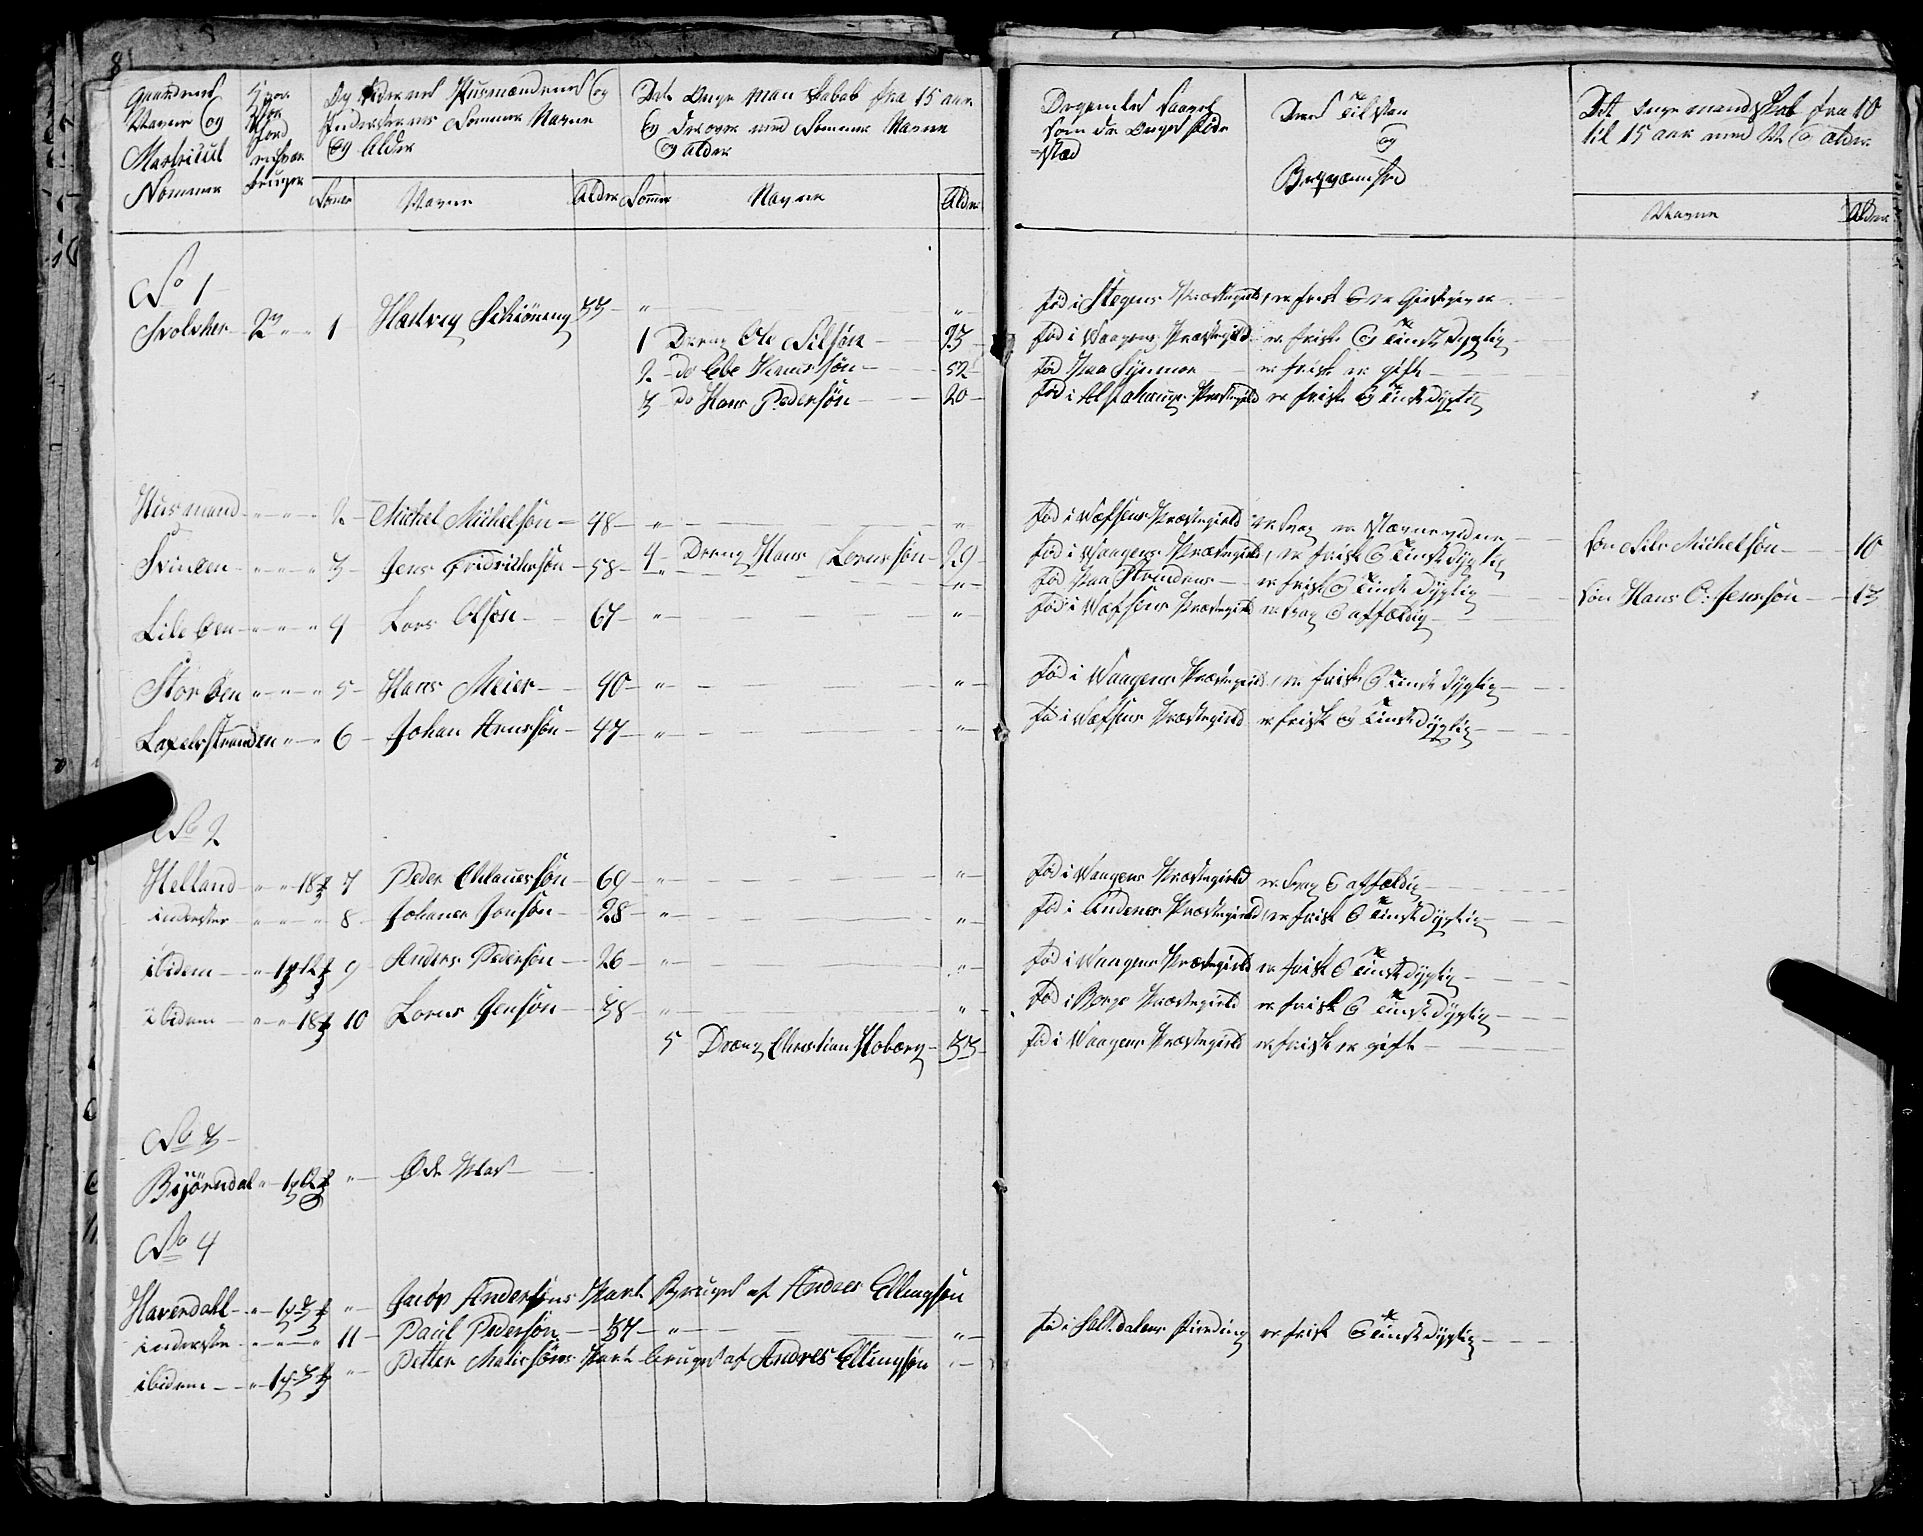 8
Gaardens Navne Og Matricul Nommer
Hvor stor Jord enhver bruger
Og Husmændenes Og Inderster nes Nommer Navne Og Alder
Det Unge Mandskab fra 15 aar Og derover med Nommer Navne Og alder
som de Unges føde Sted
Deres Tilstan og Beqvæmhed
Det Unge mandskab fra 10 til 15 aar med N Og alder
Nomer Navne Alder Nomer Navne Alder Navne Alder
No 1
Svolvær 2 " " 1 Hartvig Schiøning 33 " " fød i Stegens Præstegield, er frisk Og er Giestgiver
1 Dreng Ole Nilsøn 23 fød i Waagens Præstegield er frisk Og Tienstdygtig
2 do Ebe Knudsøn 52 fød paa Syndmør er frisk er gift
3 do Hans Pedersøn 20 fød i Alstahaugs Præstegield er frisk Og Tienstdygtig
Husmand " " " 2 Michel Michelsøn 48 " " fød i Wefsens Præstegield er svag Søn Nils Michelsøn 10
Svinøen " " " 3 Jens Fridrichsøn 58 4 Dreng Hans Lornsøn 29 fød i Waagens Præstegield, er frisk Og Tienstdygtig
" " fød paa Strinden er frisk Og Tienstdygtig Søn Hans C: Jensøn 13
Lile Øen " " " 4 Lars Olsøn 67 " " fød i Wefsens Præstegield er svag Og affældig
Stor Øen " " " 5 Hans Meier 40 " " fød i Waagens Præstegield, er frisk Og Tienstdygtig
" " 6 Johan Arnesøn 47 " " fød i Wefsens Præstegield er frisk Og Tienstdygtig
No 2
Helland " " 18 7 Peder Claussøn 69 " " fød i Waagens Præstegield er svag Og affældig
inderster " " " 8 Johannes Jonsøn 28 " " fød i Andenes Præstegield, er frisk Og Tienstdygtig
ibidem " 9 Anders Pedersøn 26 " " fød i Waagens Præstegield er frisk Og Tienstdygtig
ibidem " " 18 10 Lorns Jensøn 38 " " fød i Borge Præstegield er frisk Og Tienstdygtig
5 Dreng Christian Hoberg 33 fød i Waagens Præstegield er frisk er gift
No 3
Bijørndal " " Øde Plas
No 4
Haverdahl " " Jacob Andersøns Part Bruges af Andres Ellingsøn
inderste " " " 11 Paul Pedersøn 37 " " fød i Saltdalens Fierding er frisk Og Tienstdygtig
ibidem " " Petter part bruges af Andres Ellingsøn "